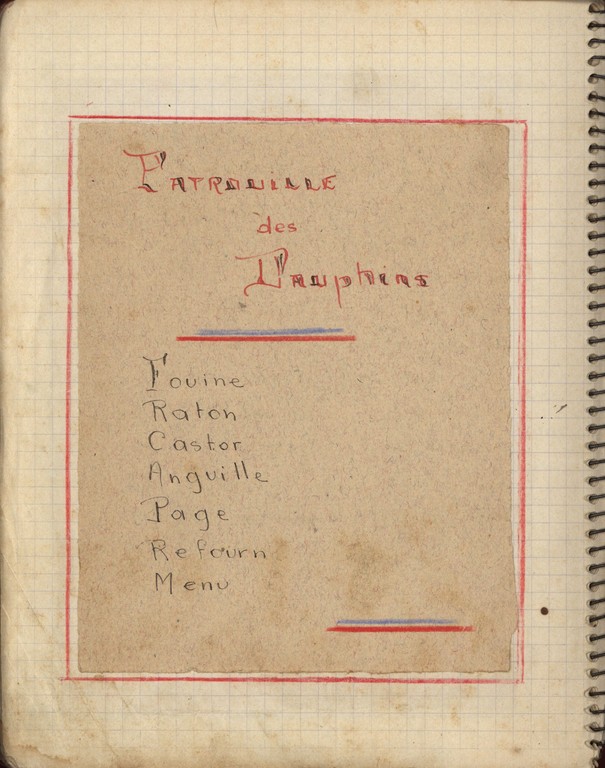 PATROUILLE
des
Dauphins
Fouine
Raton
Castor
Anguille
Page
Refourn
Menu